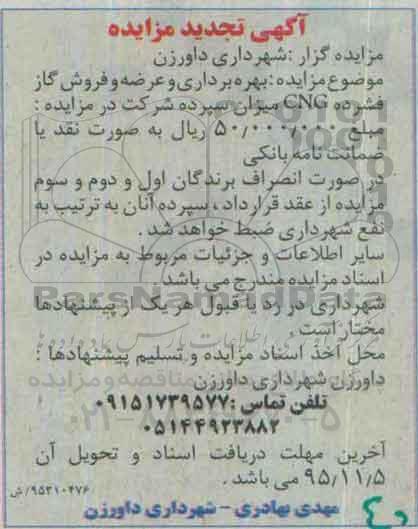 آگهی تجدید مزایده
مزایده گزار :شهرداری داورزن
موضوع مزایده :بهره برداری و عرضه و فروش گاز
فشرده CNG میزان سپرده شرکت در مزایده :
مبلغ ۵۰/۰۰۰/۰۰۰ ریال به صورت نقد یا
ضمانت نامه بانکی
در صورت انصراف برندگان اول و دوم و سوم
مزایده از عقد قرارداد ، سپرده آنان به ترتیب به
نفع شهرداری ضبط خواهد شد .
سایر اطلاعات و جزئیات مربوط به مزایده در
اسناد مزایده مندرج می باشد .
شهرداری در رد یا قبول هر یک از پیشنهادها
مختار است .
محل أخذ اسناد مزایده و تسلیم پیشنهادها :
داورزن شهرداری داورزن
تلفن تماس :۰۹۱۵۱۷۳۹۵۷۷
۰۵۱۴۴۹۲۳۸۸۲
آخرین مهلت دریافت اسناد و تحویل آن
۹۵/۱۱/۵ می باشد .
۹۵۳۱۰۴۷۶/ ش
مهدی بهادری - شهرداری داورزن
ParsNamadData